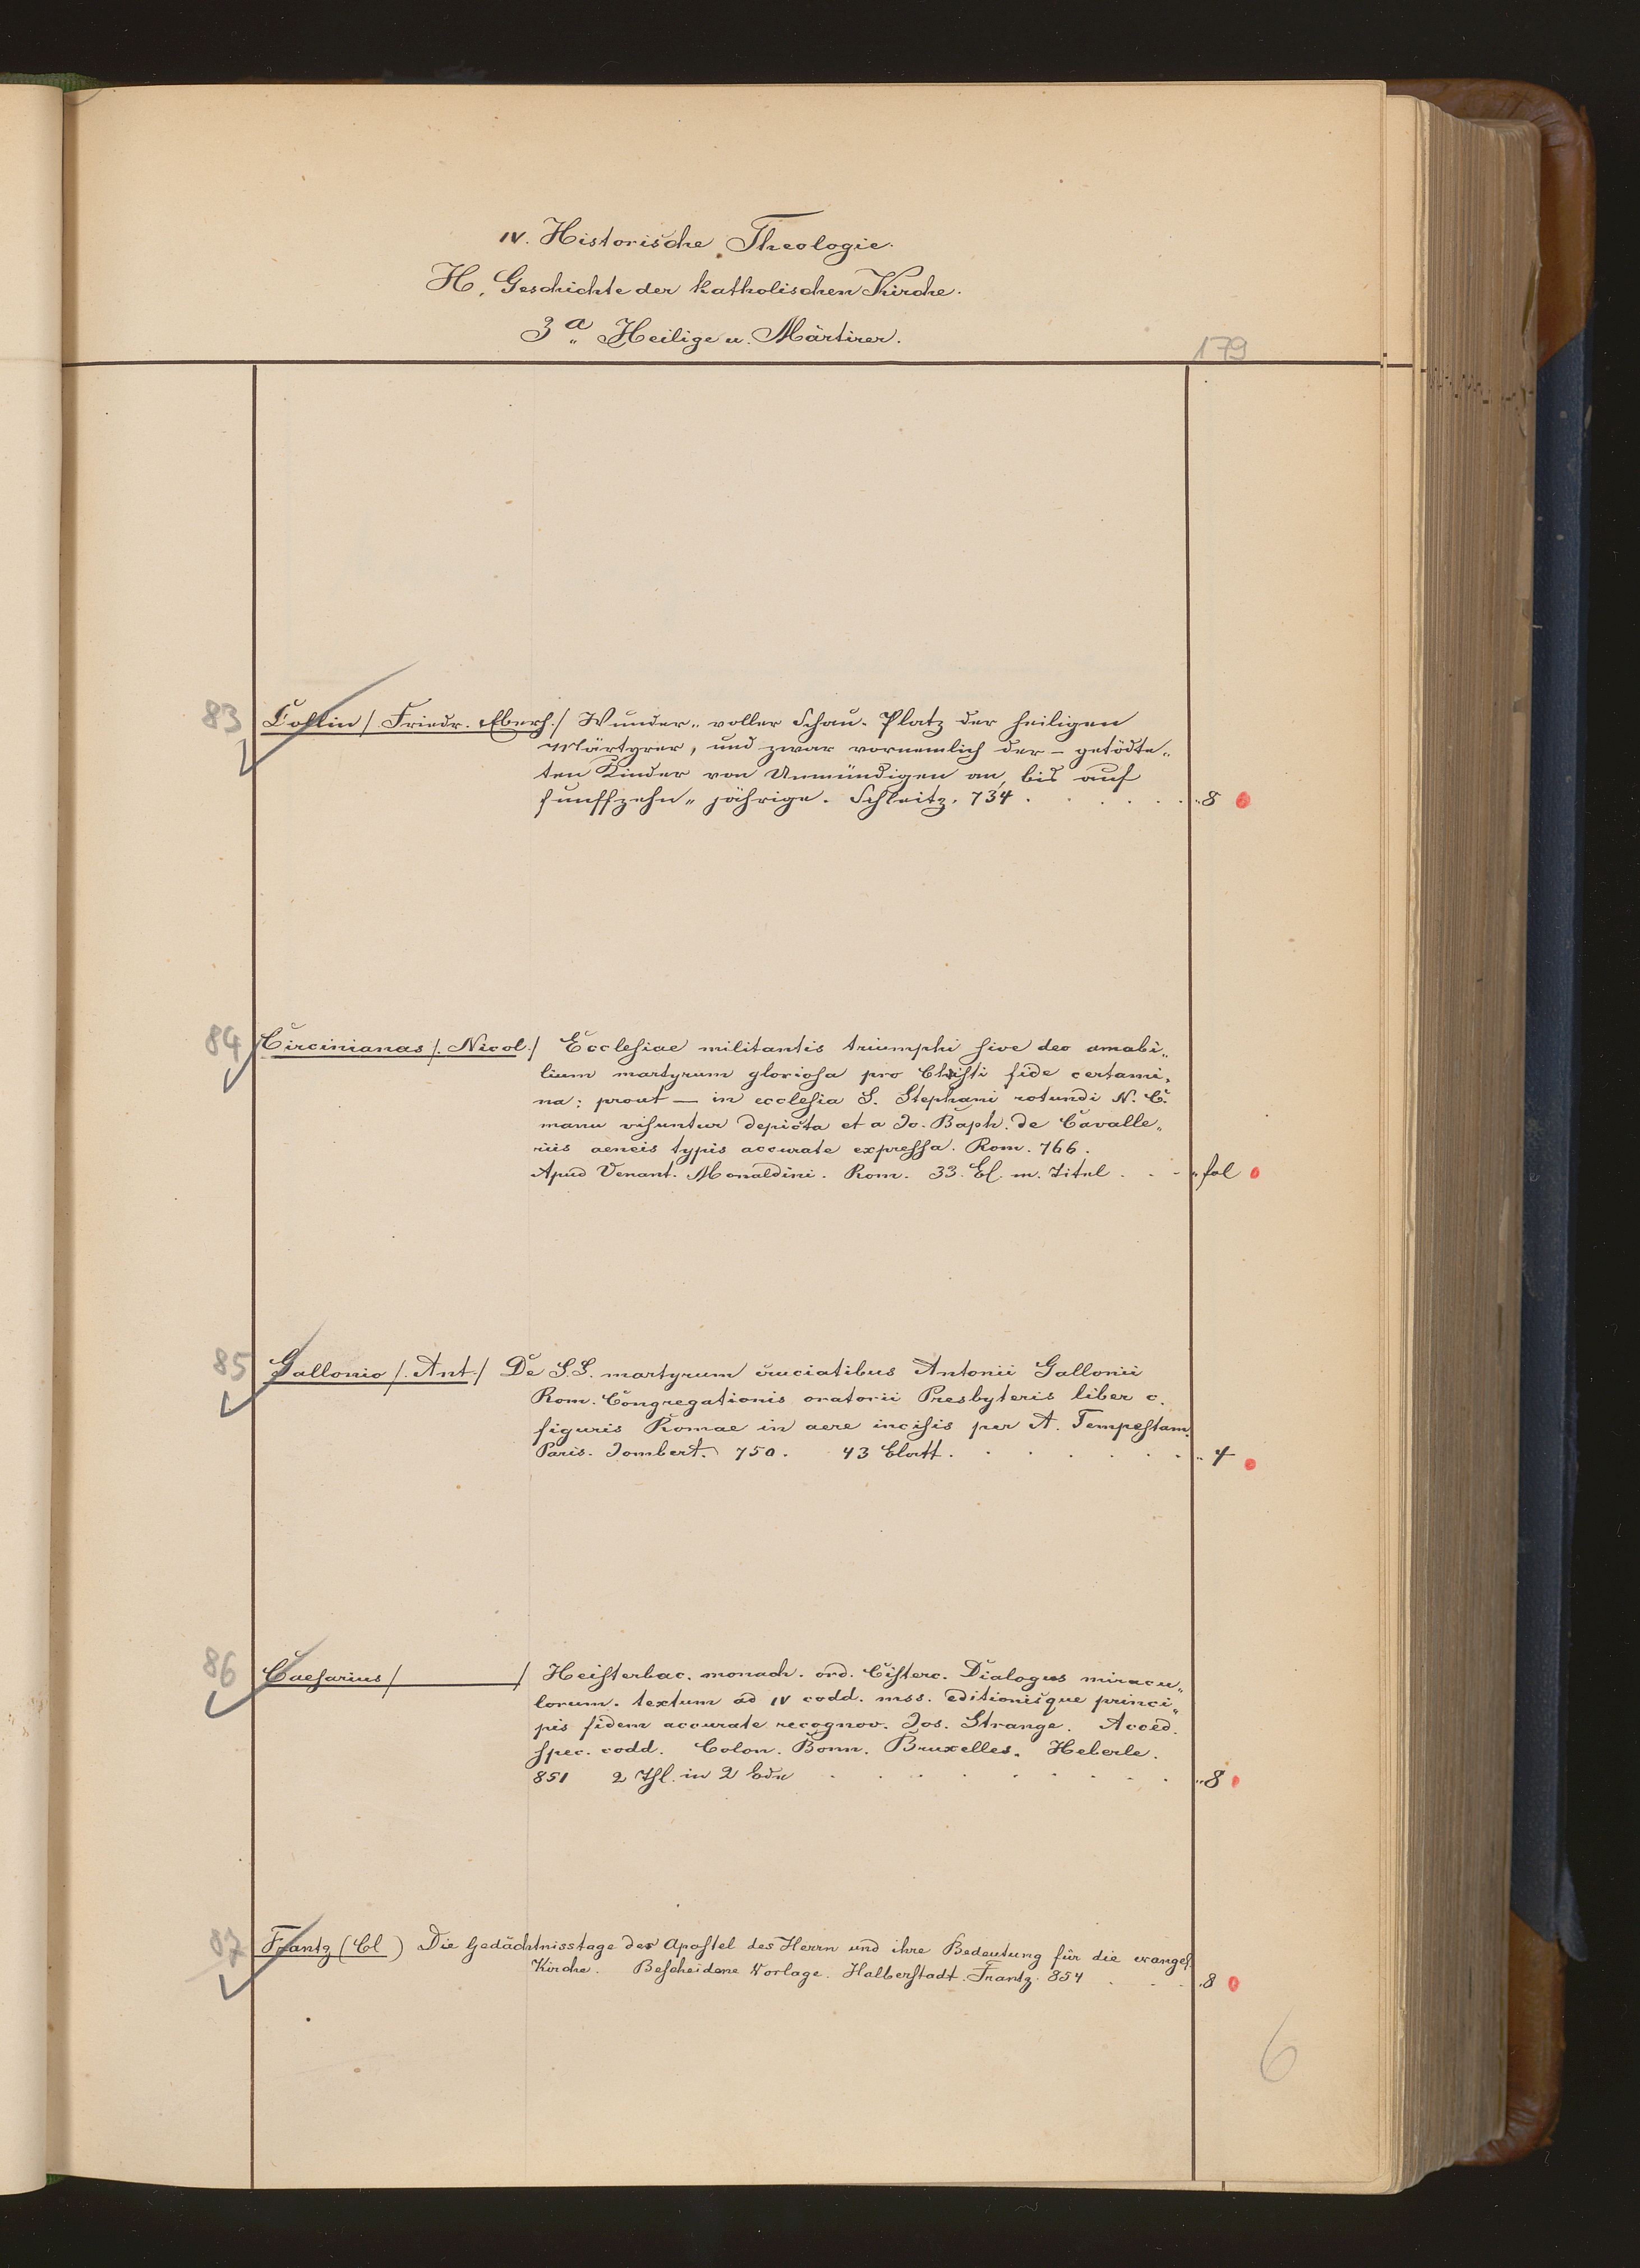 IV. Historische Theologie.
H. Geschichte der katholischen Kirche.
3a„ Heilige u. Märtirer.
179
83 Collin /. Friedr. Eberh./ Wunder„ voller Schau- Platz der heiligen
Märtyrer, und zwar vornemlich der – getödte„
ten Kinder von Unmündigen an, bis auf
funffzehn„ jährige. Schleitz. 734 . . . . . „8
84 Circinianas /. Nicol./ Ecclesiae militantis triumphi sive deo amabi„
lium martyrum gloriosa pro Christi fide certami„
na: prout — in ecclesia S. Stephani rotundi N. C.
manu visuntur depicta et a Jo. Baph. de Cavalle„
riis aeneis typis accurate expressa. Rom. 766.
Apud Venant. Monaldini. Rom. 33. Bl. m. Titel . . - „fol
85 Gallonio /. Ant./ De S.S. martyrum cruciatibus Antonii Gallonii
Rom. Congregationis oratorii Presbyteris liber c.
figuris Romae in aere incisis per A. Tempestam.
Paris. Jombert. 750. 43 Blatt. . . . . . „ 4
86 Caesarius / / Heisterbac. monach. ord. Cisterc. Dialogus miracu„
lorum. textum ad IV codd. mss. editionisque princi„
pis fidem accurate recognov. Jos. Strange. Acced.
spec. codd. Colon. Bonn. Bruxelles. Heberle.
851 2 Thl. in 2 Bdn . . . . . . . „8
87 Frantz (Cl ) Die Gedächtnisstage der Apostel des Herrn und ihre Bedeutung für die evangel.
Kirche. Bescheidene Vorlage. Halberstadt. Frantz. 854 . . . „8
6